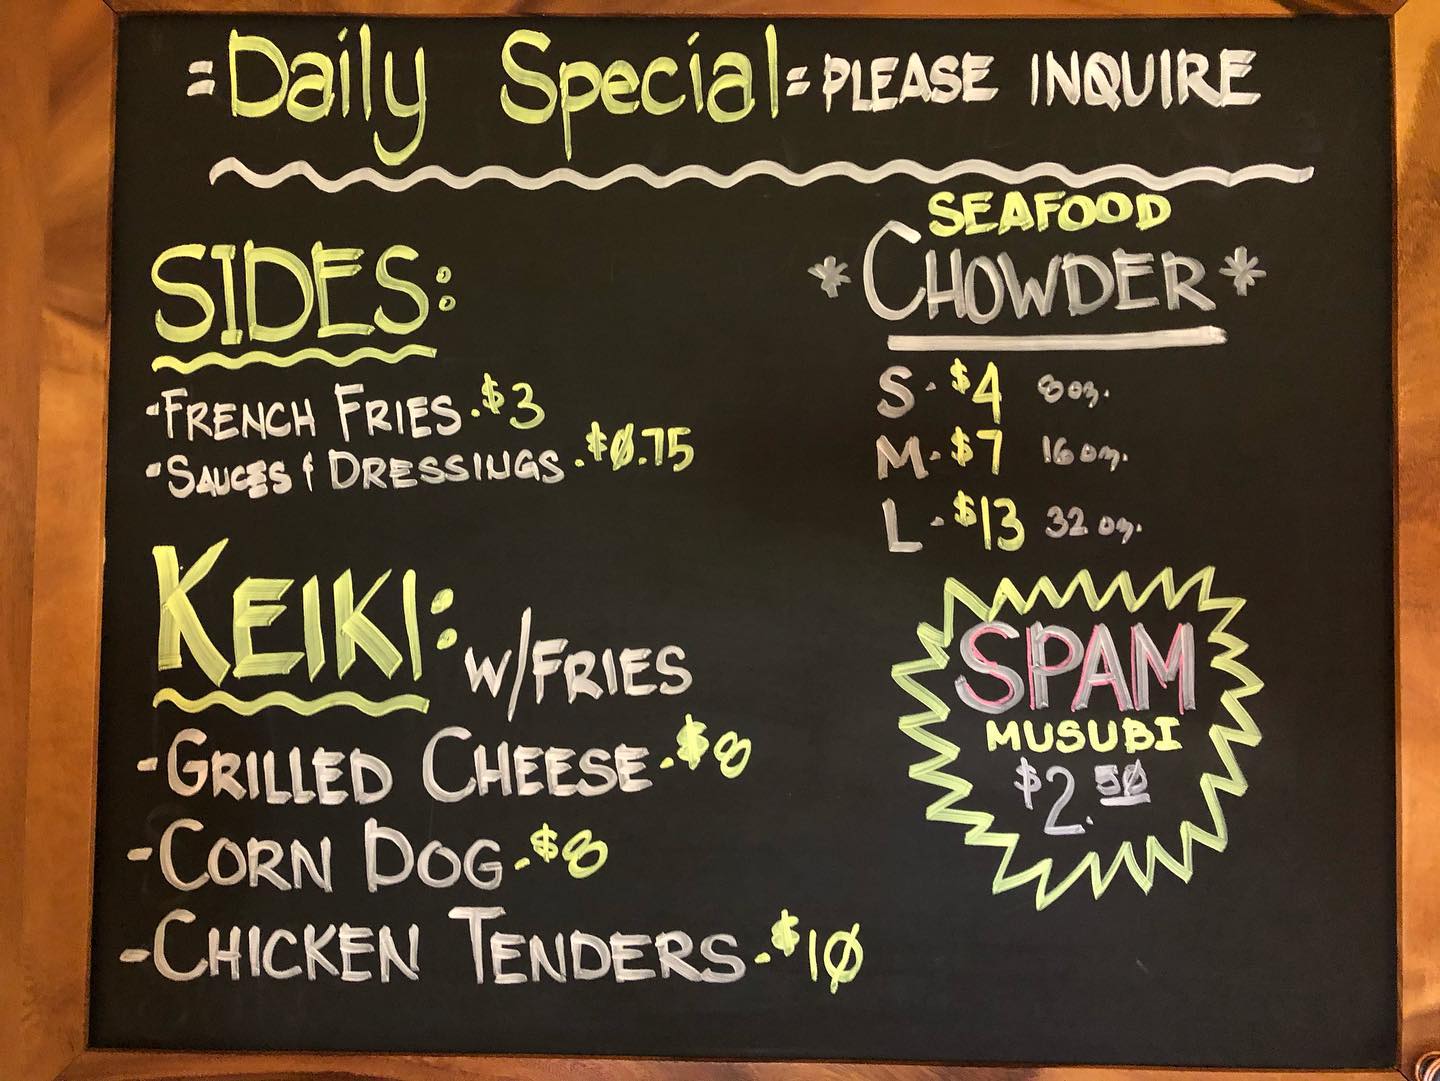 =Daily Special= PLEASE INQUIRE
SIDES:
-FRENCH FRIES.$3
-SAUCES & DRESSINGS.$0.75
KEIKI: W/FRIES
-GRILLED CHEESE.$8
-CORN DOG.$8
-CHICKEN TENDERS.$10
SEAFOOD
*CHOWDER*
S-$4 8oz.
M-$7 16oz.
L-$13 32oz.
SPAM
MUSUBI
$2.50